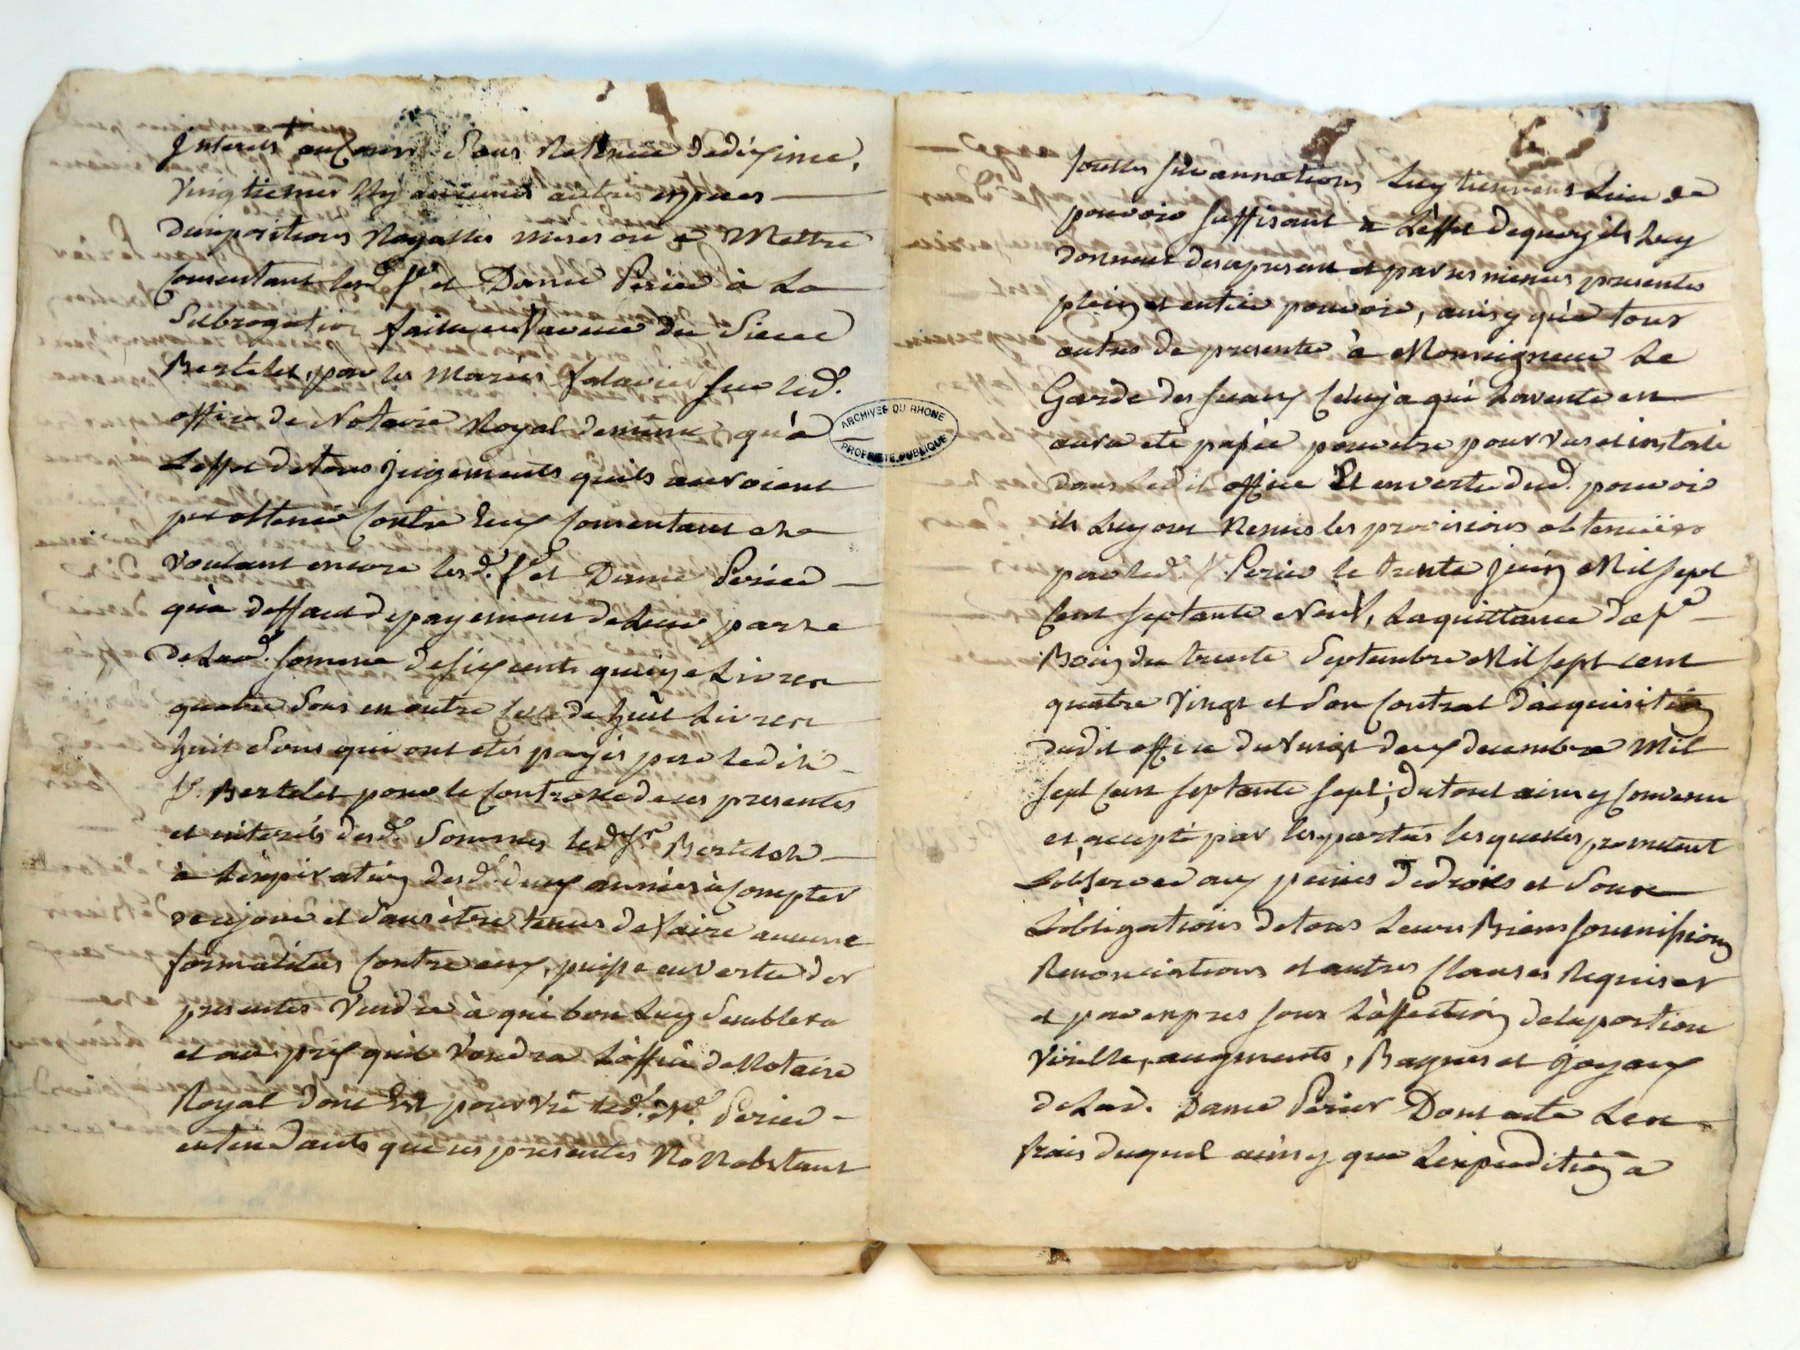 Interets au Cours Sans Retenue de dixime,
Vingtiemes Ny aucunes autres especes
D'impositions Royalles mises ou a Mettre
Consentant lesd. Sr et Dame Perier à La
Subrogation faitte en faveur du Sieur
Bertelet, par les Maries Falavier sur led.
office de Notaire Royal de meme qu'à
L'effet de tous jugements quils auroient
pu obtenir Contre Eux Consentant et
Voulant encore lesd. Sr et Dame Perier
qu'a deffaut de payement de Leur part
de Lad. Somme de six cents quinze Livres
quatre Sous en outre Celle de huit Livres
huit Sous qui ont etés payés par ledit
Sr. Bertelet pour le Controlle de ces presentes
et interêts desd. Sommes led. Sr Bertelet
à L'expiration desd. deux années à Compter
de ce jour et Sans être tenus de faire aucune
formalités Contre eux, puisse en vertu des
presentes Vendre à qui bon Luy Semblera
et au prix quil Voudra L'office de Notaire
Royal dont Est pourvu led. Me. Perier
entendants que ces presentes Nonobstant
touttes surannations Luy tiennent Lieu de
pouvoir suffisant a L'effet de quoy ils Luy
donnent des apresent et par ces memes presentes
plein et entier pouvoir, ainsy qu'à tous
autres de presenter à Monseigneur Le
Garde des Sceaux Celuy à qui La vente en
aura eté passée pour etre pourvus et installé
dans Ledit office Et en vertu dud. pouvoir
ils Luy ont Remis les provisions obtenües
par led. Sr Perier le trente juin Mil sept
Cent septante Neuf, La quittance de Sr
Boin du trente Septembre Mil sept cent
quatre Vingt et Son Contrat d'acquisition
dudit office du Vingt deux decembre Mil
sept Cent septante sept; du tout ainsy Convenu
et accepté par les parties lesquelles promettent
L'observer aux peines de droits et Sous
L'obligations de tous Leurs Biens soumissions
Renonciations et autres Clauses Requises
et par expres sous L'affection de la portion
Virille, augments, Bagues et joyaux
de Lad. Dame Perier Dont acte Les
frais duquel ainsy que L'expedition à
ARCHIVES DU RHONE
PROPRIETE PUBLIQUE